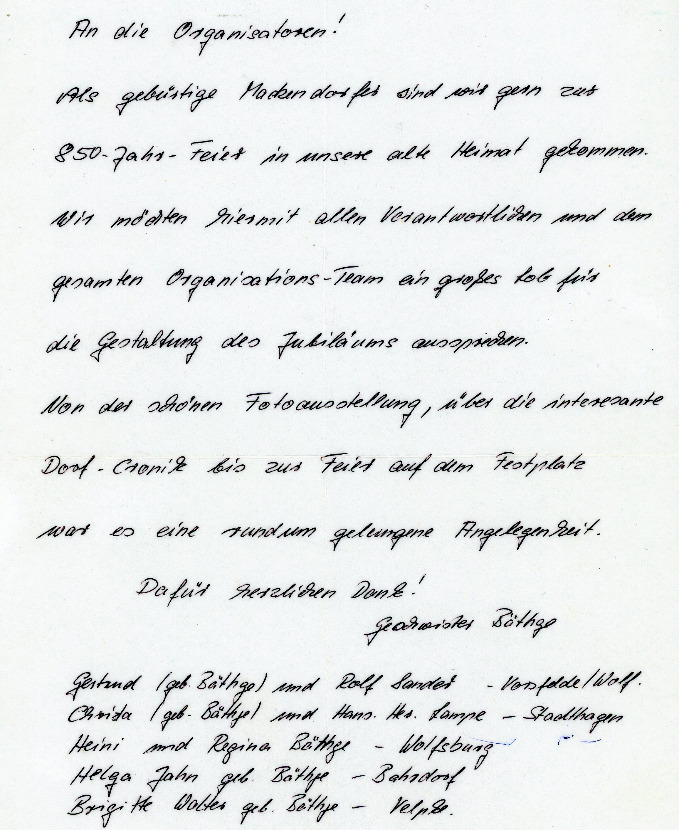 An die Organisatoren!
Als gebürtige Mackendorfer sind wir gern zur
850-Jahr-Feier in unsere alte Heimat gekommen.
Wir möchten hiermit allen Verantwortlichen und dem
gesamten Organisations-Team ein großes Lob für
die Gestaltung des Jubiläums aussprechen.
Von der schönen Fotoausstellung, über die interesante
Dorf-Cronik bis zur Feier auf dem Festplatz
war es eine rundum gelungene Angelegenheit.
Dafür herzlichen Dank!
Geschwister Bäthge
Gertrud (geb. Bäthge) und Rolf Sander - Vorsfelde/Wolf.
Christa (geb. Bäthge) und Hans. Her. Lampe - Stadthagen
Heini und Regina Bäthge - Wolfsburg
Helga Jahn geb. Bäthge - Bahrdorf
Brigitte Walter geb. Bäthge - Velpke.